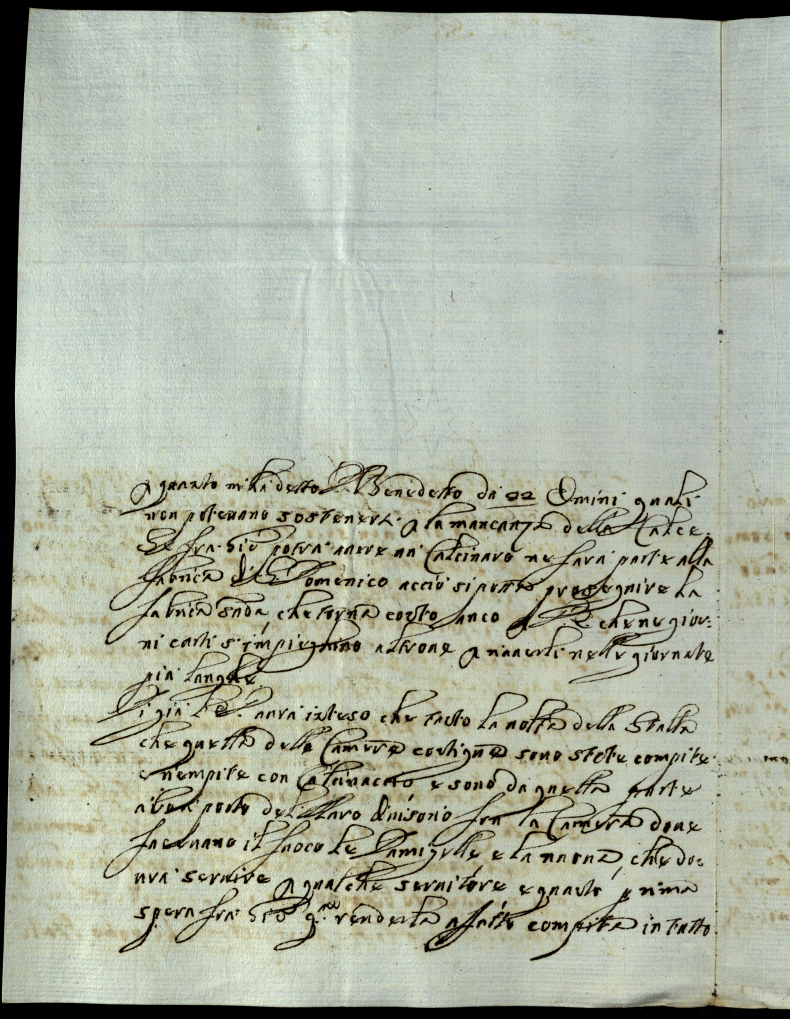 quanto mi hà detto Benedetto da 22 Omini quali
non poteuano sostenersi la mancanza della Calce.
Se frà potrà auere un Calcinaro ne farà parte alla
fabrica di Domenico acciò si possa proseguire la
fabrica che torna costo anco che ne gior:
ni corti s'impieghino altroue nelle giornate
più lunghe
Di già aurà inteso che tanto la uolta della Stalla
che quella della Camera contigua sono state compite
e riempite con Calcinaccio, e sono da quella parte
à bon porto del Muro diuisorio frà la Camera doue
faceuano il fuoco le Damigelle e la nuoua, che do:
urà seruire qualche seruitore e quanto prima
spera frà renderla affatto compita in tutto